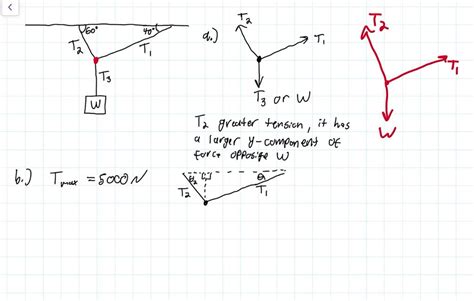 60°
40°
T2
T1
T3
W
a.)
T2
T1
T3 or W
T2 greater tension, it has
a larger y-component of
force opposite W
T2
T1
W
b.) Tmax = 5000 N
θ2
θ1
T2
T1